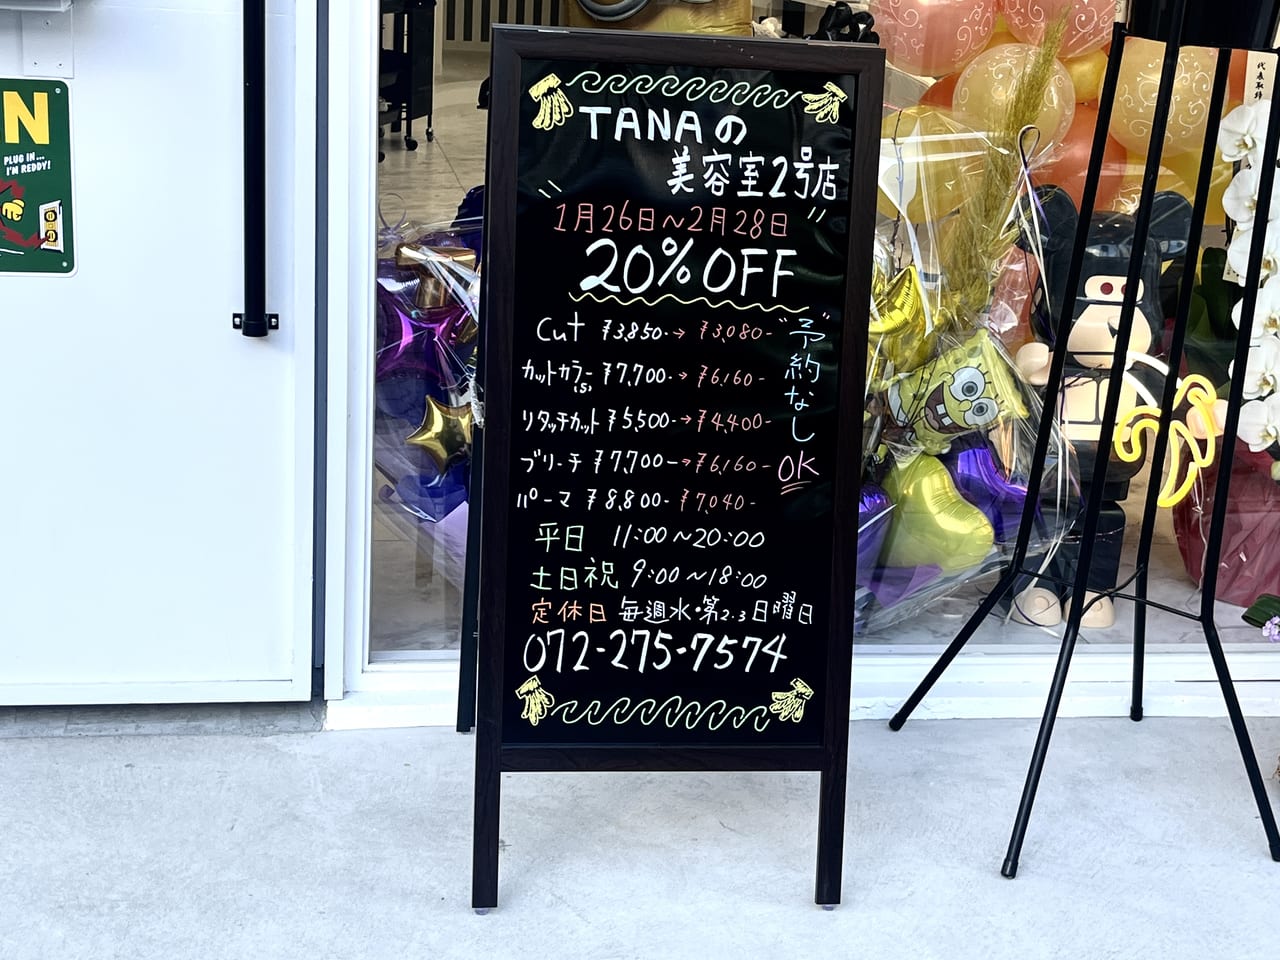 N
PLUG IN...
I'M REDDY!
TANAの
美容室2号店
1月26日～2月28日
20% OFF
Cut ¥3,850-→¥3,080-
カットカラー(S) ¥7,700-→¥6,160-
リタッチカット ¥5,500-→¥4,400-
ブリーチ ¥7,700-→¥6,160-
パーマ ¥8,800-¥7,040-
"予約なし"
OK
平日 11:00～20:00
土日祝 9:00～18:00
定休日 毎週水・第2.3日曜日
072-275-7574
代表取締